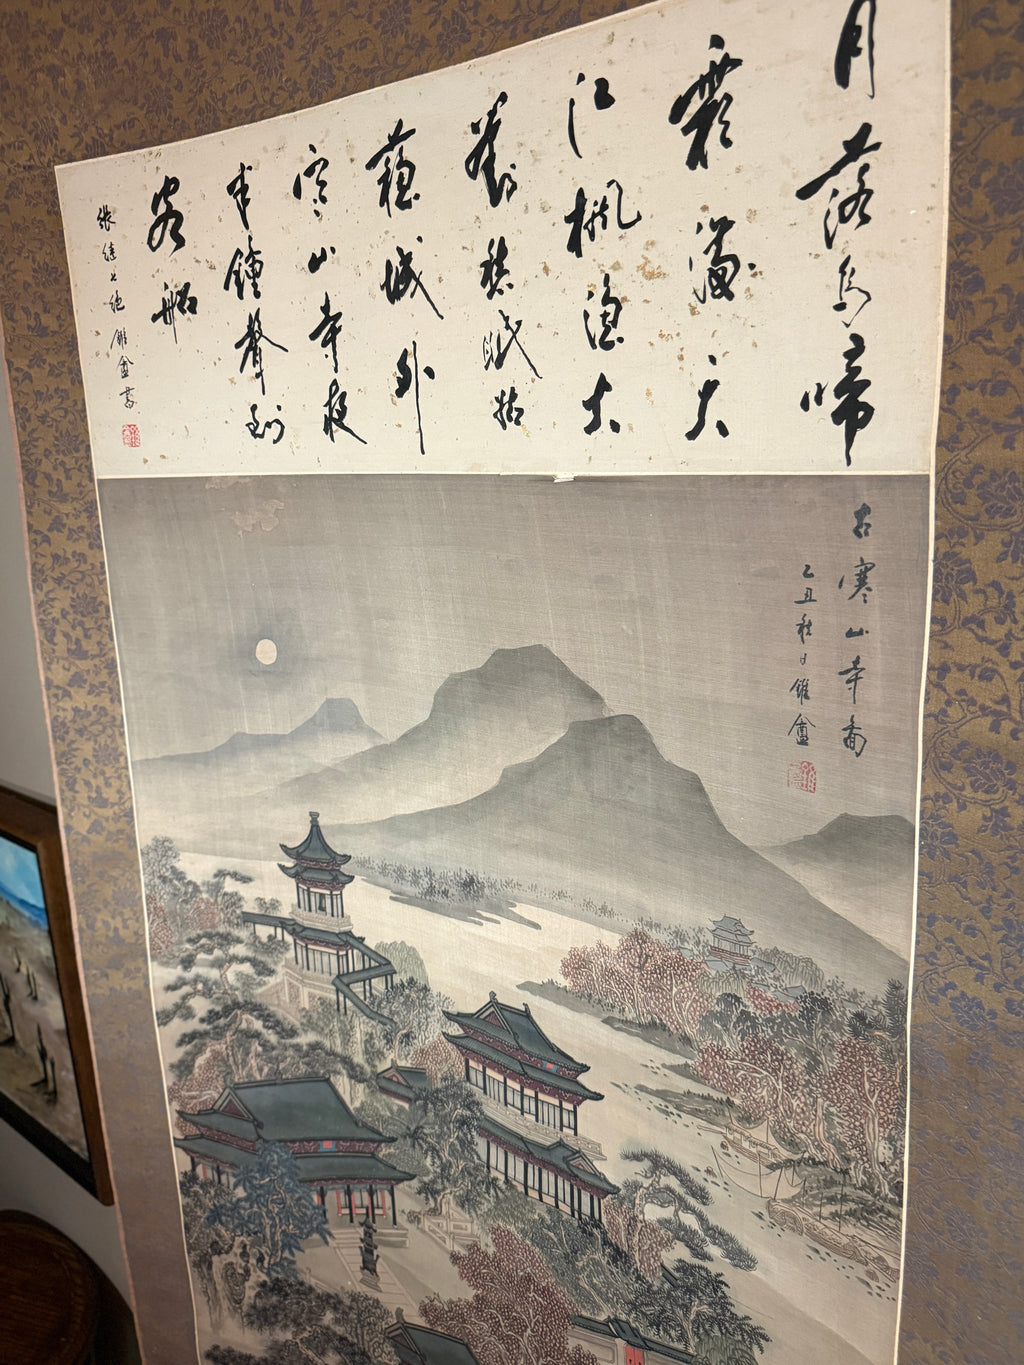 月落烏啼
霜滿天
江楓漁火
對愁眠姑
蘇城外
寒山寺夜
半鐘聲到
客船
張繼七絕錐盦書
古寒山寺圖
乙丑秋日錐盦